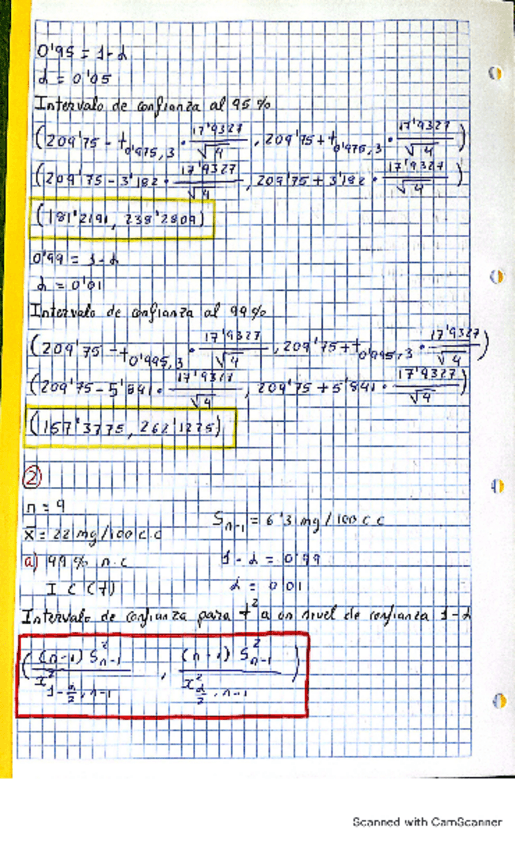 0'95 = 1-α
α = 0'05
Intervalo de confianza al 95%
(209'75 - t0'975,3 · 17'9327/√4 , 209'75 + t0'975,3 · 17'9327/√4)
(209'75 - 3'182 · 17'9327/√4 , 209'75 + 3'182 · 17'9327/√4)
(181'2191, 238'2809)
0'99 = 1-α
α = 0'01
Intervalo de confianza al 99%
(209'75 - t0'995,3 · 17'9327/√4 , 209'75 + t0'995,3 · 17'9327/√4)
(209'75 - 5'841 · 17'9327/√4 , 209'75 + 5'841 · 17'9327/√4)
(157'3775, 262'1275)
②
n = 9
x̄ = 22 mg/100 c.c Sn-1 = 6'3 mg/100 c.c
a) 99% n.c 1-α = 0'99
I C (σ) α = 0'01
Intervalo de confianza para σ² a un nivel de confianza 1-α
((n-1) S²n-1 / x²1-α/2, n-1 , (n-1) S²n-1 / x²α/2, n-1)
Scanned with CamScanner